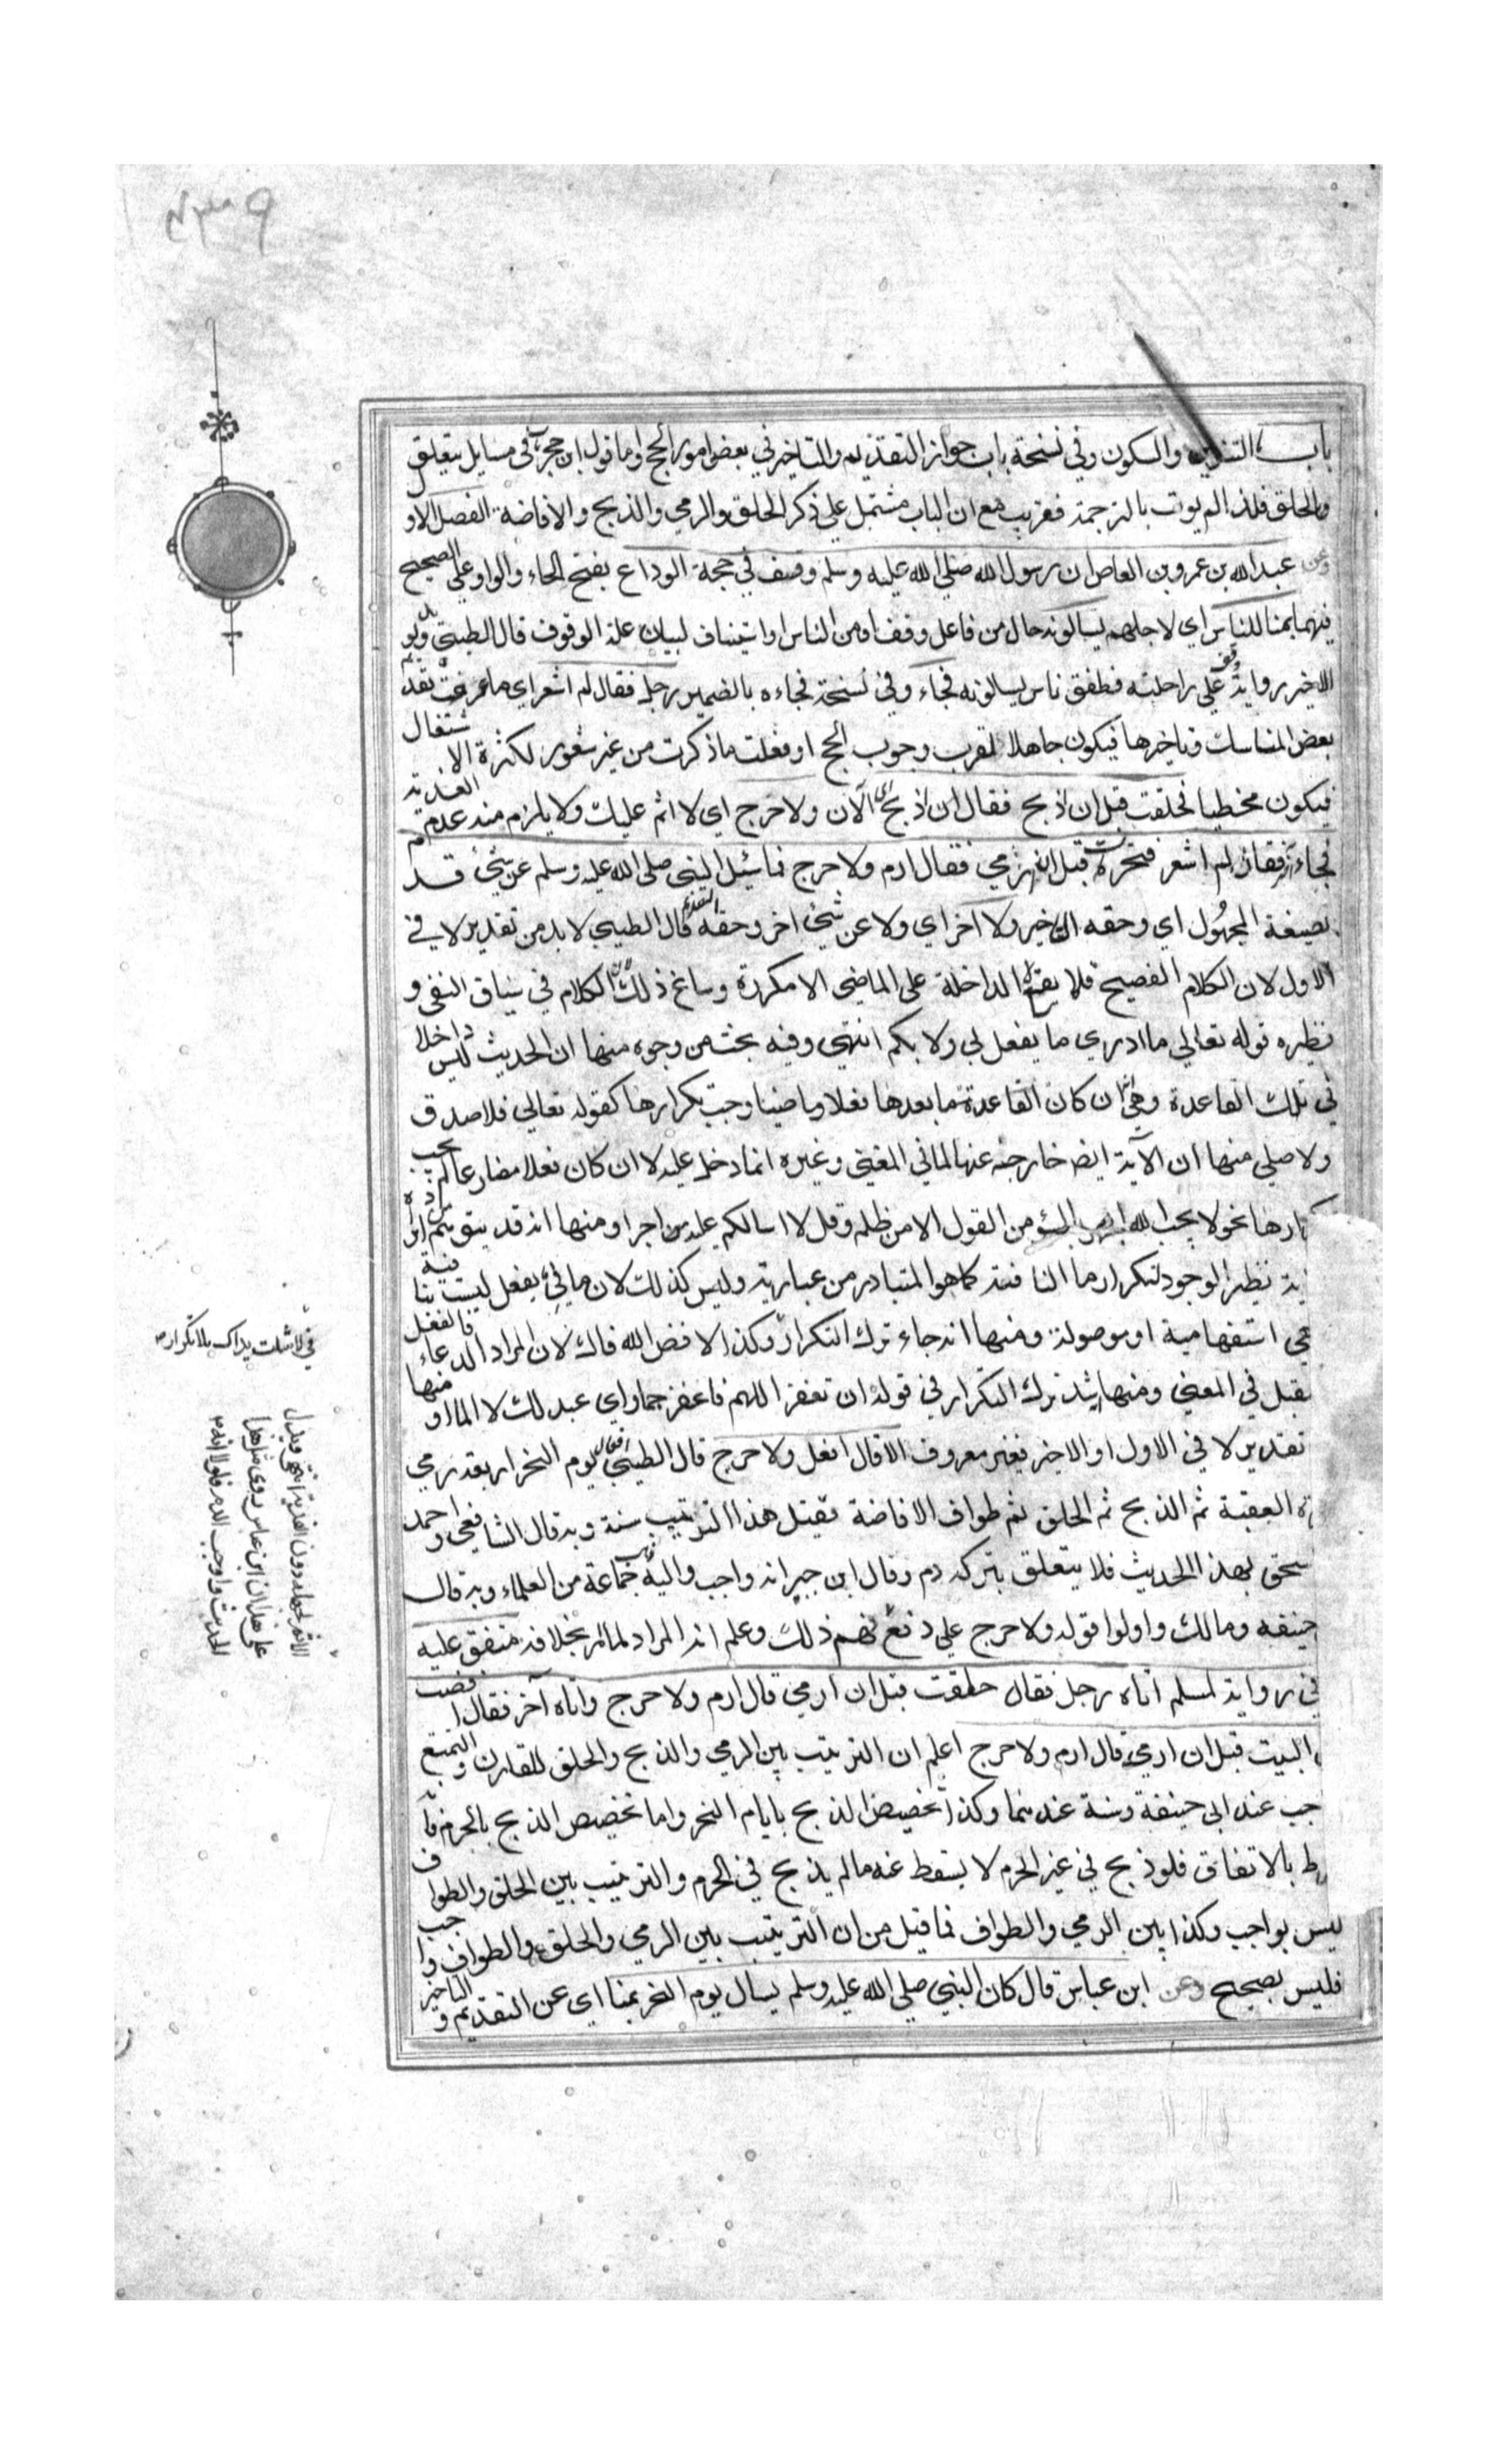 باب التنوين والسكون وفي نسخة باب جواز التقديم والتاخير في بعض امور الحج واما قول ابن حجر في مسايل يتعلق
والحلق فلذا لم يوت بالترجمة فغريب مع ان الباب مشتمل علي ذكر الحلق والرمي والذبح والافاضة الفصل الاو
وعن عبد الله بن عمرو بن العاص ان رسول الله صلي الله عليه وسلم وقف في حجة الوداع بفتح الحاء والواو علي الصحيح
فيهما بمنا للناس اي لاجلهم يسالونه حال من فاعل وقف او من الناس او استيناف لبيان علة الوقوف قال الطيبي
الاخير رواية وقف علي راحلته فطفق ناس يسالونه فجاء وفي نسخة فجاءه بالضمير رجل فقال لم اشعر اي ما عرفت تقديم
بعض المناسك وتاخيرها فيكون جاهلا لقرب وجوب الحج او فعلت ما ذكرت من غير شعور لكثرة الاشتغال
فيكون مخطيا فحلقت قبل ان اذبح فقال اذبح اي الآن ولا حرج اي لا اثم عليك ولا يلزم منه عدم الفدية
فجاء آخر فقال لم اشعر فنحرت قبل ان ارمي فقال ارم ولا حرج فما سئل النبي صلي الله عليه وسلم عن شيء قدم
بصيغة المجهول اي وحقه التاخير ولا اخر اي ولا عن شيء اخر وحقه التقديم قال الطيبي لا بد من تقدير لا في
الاول لان الكلام الفصيح قلما يقع لا الداخلة علي الماضي الا مكررة وساغ ذلك لان الكلام في سياق النفي و
نظيره قوله تعالي ما ادري ما يفعل لي ولا بكم انتهي وفيه بحث من وجوه منها ان الحديث ليس داخلا
في تلك القاعدة وهي ان كان القاعدة ما بعدها فعلا ماضيا وجب تكرارها كقوله تعالي فلا صدق
ولا صلي منها ان الآية ايضا خارجة عنها لما في المغني وغيره انما دخل عليه لا ان كان فعلا مضارعا لم يجب
تكرارها نحو لا يحب الله الجهر بالسوء من القول الا من ظلم وقل لا اسالكم عليه من اجرا ومنها انه قد يتوهم ان مراده
نظير الوجود لتكرار ما النافية كما هو المتبادر من عبارته وليس كذلك لان ما في يفعل ليست نافية
هي استفهامية او موصولة ومنها انه جاء ترك التكرار وكذا لا فض الله فاك لان المراد الدعاء فالفعل
مستقبل في المعني ومنها شذ ترك التكرار في قوله ان تغفر اللهم فاغفر جما واي عبد لك لا الما او منها
تقدير لا في الاول او الاخر فغير معروف الا قال افعل ولا حرج قال الطيبي افعال يوم النحر اربعة رمي
جمرة العقبة ثم الذبح ثم الحلق ثم طواف الافاضة فقيل هذا الترتيب سنة وبه قال الشافعي واحمد
اسحق لهذا الحديث فلا يتعلق بتركه دم وقال ابن جبير انه واجب واليه ذهب جماعة من العلماء وبه قال
حنيفه ومالك واولوا قوله ولا حرج علي دفع نهم ذلك وعلم انه المراد لما لم بخلافه متفق عليه
في رواية لمسلم اتاه رجل فقال حلقت قبل ان ارمي قال ارم ولا حرج واتاه آخر فقال افضت
البيت قبل ان ارمي قال ارم ولا حرج اعلم ان الترتيب بين الرمي والذبح والحلق للقارن والتمتع
جب عند ابي حنيفة وسنة عندهما وكذا تخصيص الذبح بايام النحر واما تخصيص الذبح بالحرم فا
شرط بالاتفاق فلو ذبح في غير الحرم لا يسقط عنه ما لم يذبح في الحرم والترتيب بين الحلق والطواف
ليس بواجب وكذا بين الرمي والطواف فما قيل من ان الترتيب بين الرمي والحلق والطواف واجب
فليس بصحيح وعن ابن عباس قال كان النبي صلي الله عليه وسلم يسال يوم النحر بمنا اي عن التقديم والتاخير
في لا شلت يداك بلا تكرار
علي هذا ان ابن عباس روي مثل هذا
الحديث واوجب الدم فلولا انه